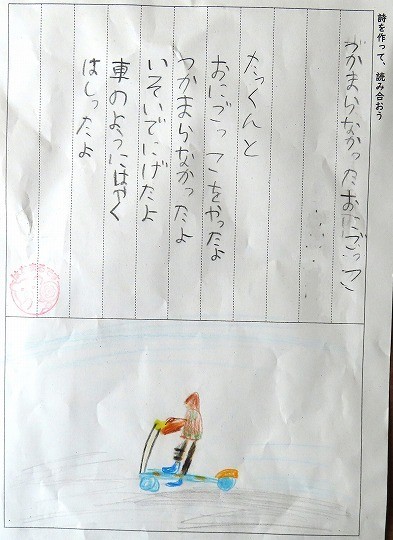 詩を作って、読み合おう
つかまらなかったおにごっこ
たっくんと
おにごっこをやったよ
つかまらなかったよ
いそいでにげたよ
車のようにはやく
はしったよ